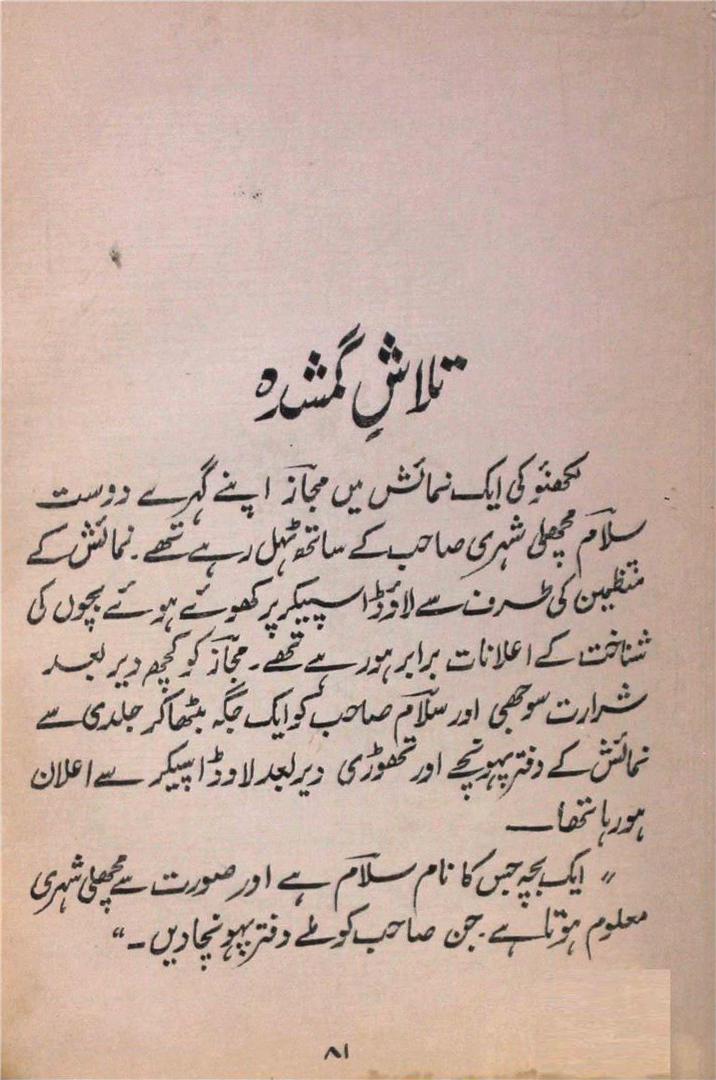 تلاشِ گمشدہ
لکھنؤ کی ایک نمائش میں مجازؔ اپنے گہرے دوست
سلامؔ مچھلی شہری صاحب کے ساتھ ٹہل رہے تھے۔ نمائش کے
منتظمین کی طرف سے لاؤڈ اسپیکر پر کھوئے ہوئے بچوں کی
شناخت کے اعلانات برابر ہو رہے تھے۔ مجازؔ کو کچھ دیر بعد
شرارت سوجھی اور سلامؔ صاحب کو ایک جگہ بٹھا کر جلدی سے
نمائش کے دفتر پہونچے اور تھوڑی دیر بعد لاوڈ اسپیکر سے اعلان
ہو رہا تھا ــــ
" ایک بچہ جس کا نام سلامؔ ہے اور صورت سے مچھلی شہری
معلوم ہوتا ہے۔ جن صاحب کو ملے دفتر پہونچا دیں۔"
۸۱